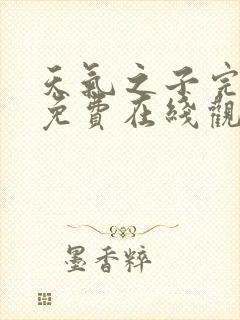 天氣之子完
免費在綫觀
墨香粹